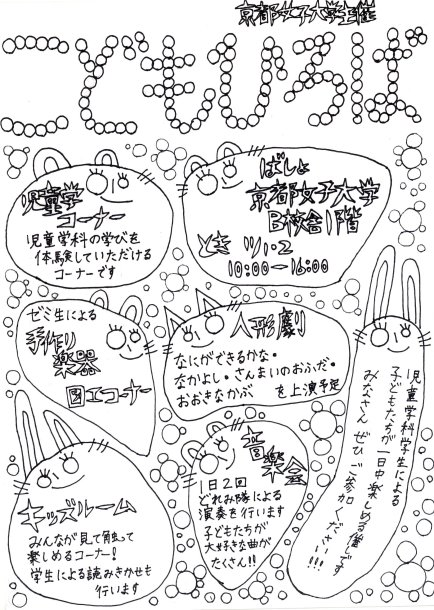 京都女子大学主催
こどもひろば
児童学
コーナー
児童学科の学びを
体験していただける
コーナーです
ばしょ
京都女子大学
B校舎1階
とき 11/1・2
10:00~16:00
ゼミ生による
手作り
楽器
図工コーナー
人形劇
なにができるかな・
なかよし・さんまいのおふだ・
おおきなかぶ を上演予定
児童学科学生による
子どもたちが一日中楽しめる催しです
みなさん ぜひご参加ください!!!
キッズルーム
みんなが見て触って
楽しめるコーナー!
学生による読みきかせも
行います
音楽会
1日2回
どれみ隊による
演奏を行います
子どもたちが
大好きな曲が
たくさん!!